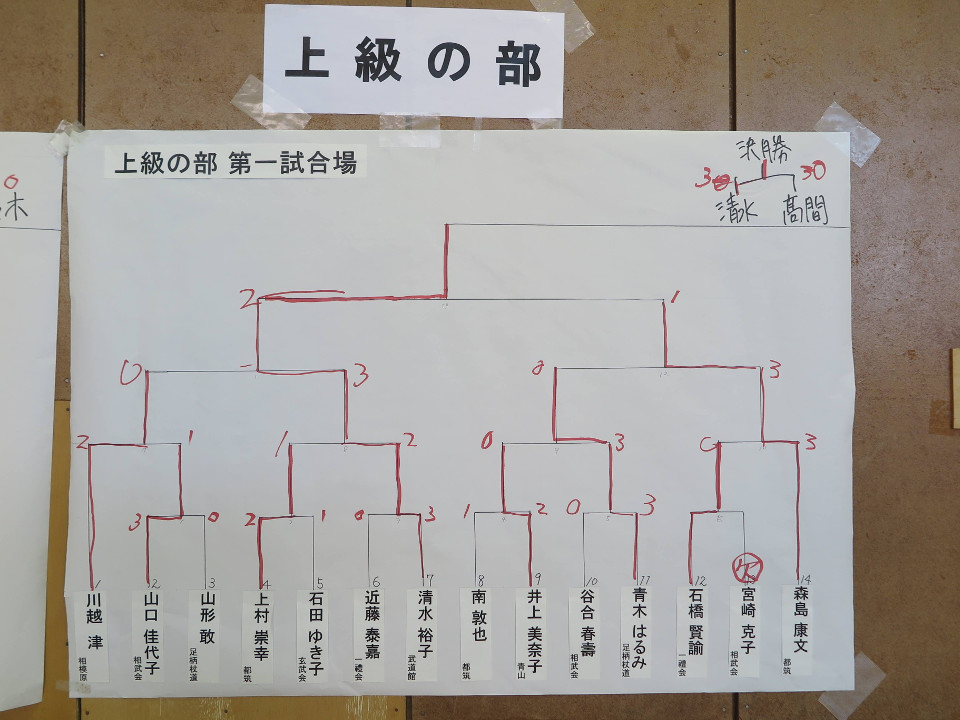 上級の部
上級の部 第一試合場
決勝
3 30
清水 高間
木
2 1
0 3 0 3
2 1 1 2 0 3 0 3
3 0 2 1 0 3 1 2 0 3
欠
1 2 3 4 5 6 7 8 9 10 11 12 13 14
川越 津
相模原
山口 佳代子
相武会
山形 敢
足柄杖道
上村 崇幸
都筑
石田 ゆき子
玄武会
近藤 泰嘉
一禮会
清水 裕子
武道館
南 敦也
都筑
井上 美奈子
青山
谷合 春壽
相武会
青木 はるみ
足柄杖道
石橋 賢諭
一禮会
宮崎 克子
相武会
森島 康文
都筑